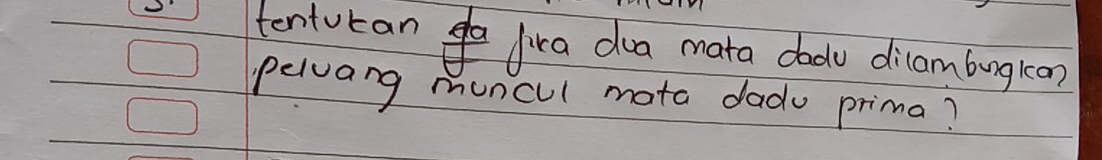 tentukan jika dua mata dadu dilambungkan
peluang muncul mata dadu prima?